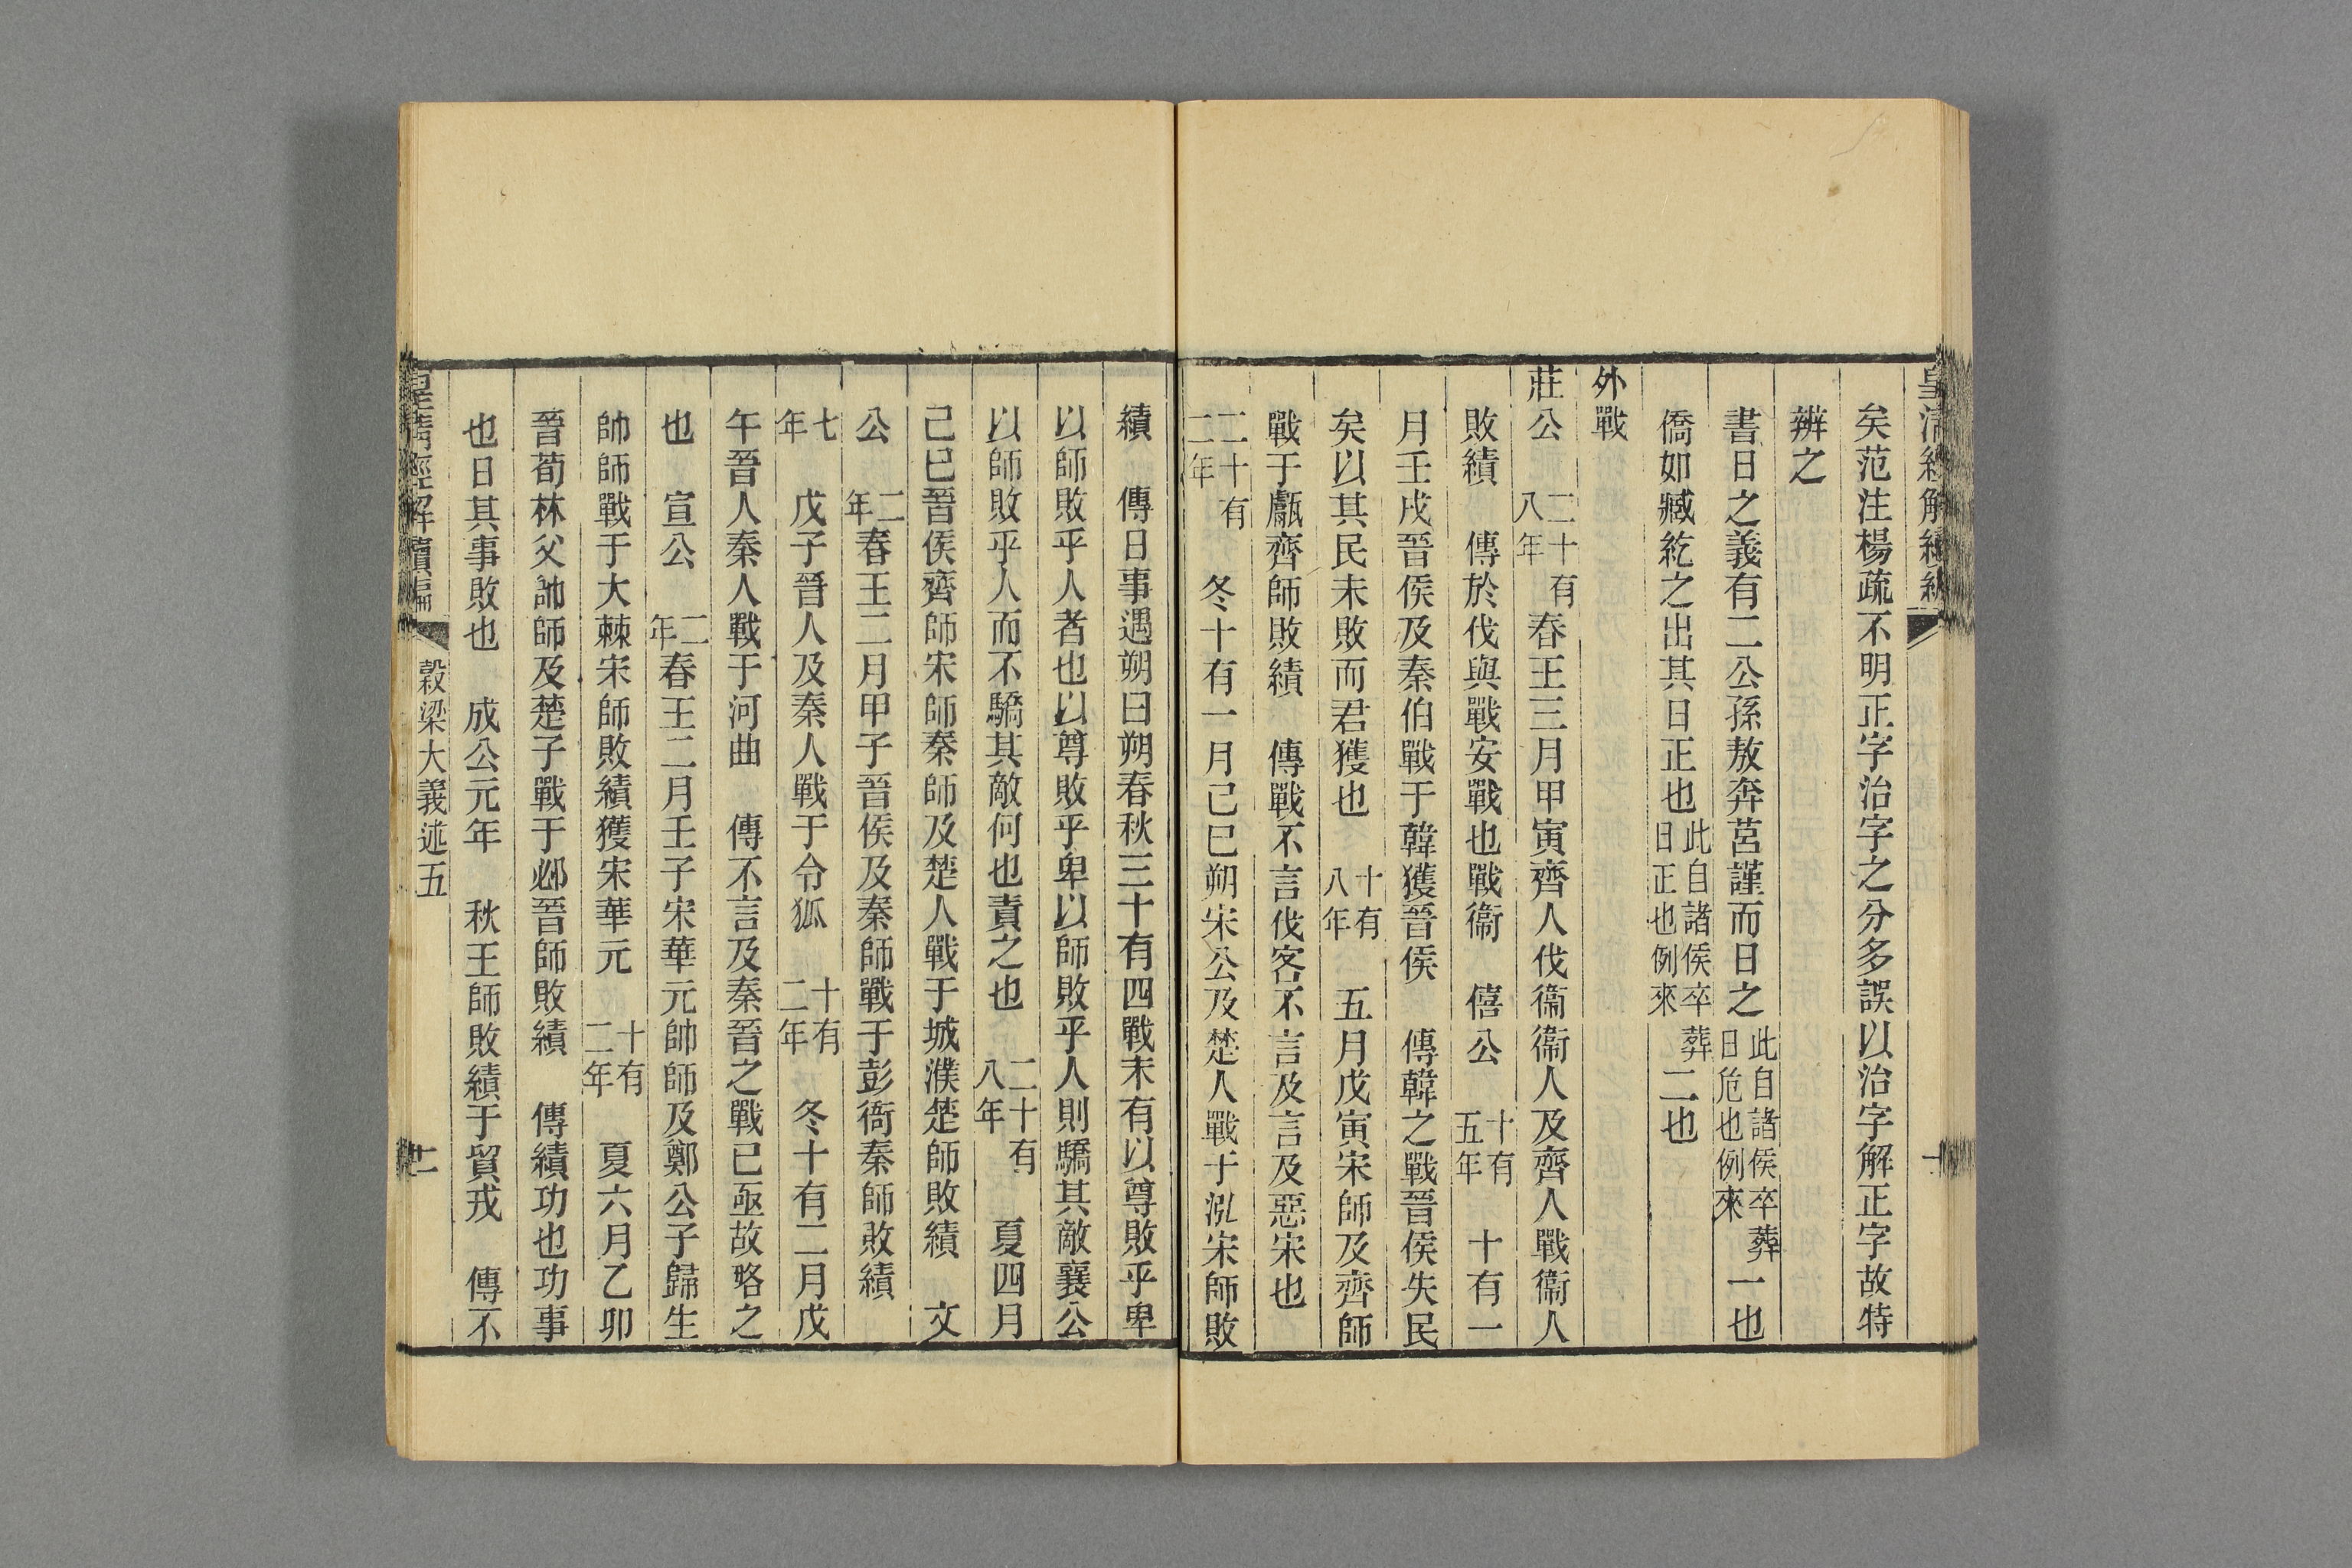 矣范注楊疏不明正字治字之分多誤以治字解正字故特
辨之
書日之義有二公孫敖奔莒謹而日之此自諸侯卒葬日危也例來一也
僑如臧紇之出其日正也此自諸侯卒葬日正也例來二也
外戰
莊公二十有八年春王三月甲寅齊人伐衞衞人及齊人戰衞人
敗績 傳於伐與戰安戰也戰衞 僖公十有五年 十有一
月壬戌晉侯及秦伯戰于韓獲晉侯 傳韓之戰晉侯失民
矣以其民未敗而君獲也 十有八年 五月戊寅宋師及齊師
戰于甗齊師敗績 傳戰不言伐客不言及言及惡宋也
二十有二年 冬十有一月己巳朔宋公及楚人戰于泓宋師敗
績 傳日事遇朔曰朔春秋三十有四戰未有以尊敗乎卑
以師敗乎人者也以尊敗乎卑以師敗乎人則驕其敵襄公
以師敗乎人而不驕其敵何也責之也 二十有八年 夏四月
己巳晉侯齊師宋師秦師及楚人戰于城濮楚師敗績 文
公二年春王二月甲子晉侯及秦師戰于彭衙秦師敗績
七年 戊子晉人及秦人戰于令狐 十有二年 冬十有二月戊
午晉人秦人戰于河曲 傳不言及秦晉之戰已亟故略之
也 宣公二年春王二月壬子宋華元帥師及鄭公子歸生
帥師戰于大棘宋師敗績獲宋華元 十有二年 夏六月乙卯
晉荀林父帥師及楚子戰于邲晉師敗績 傳績功也功事
也日其事敗也 成公元年 秋王師敗績于貿戎 傳不
皇清經解續編 穀梁大義述五